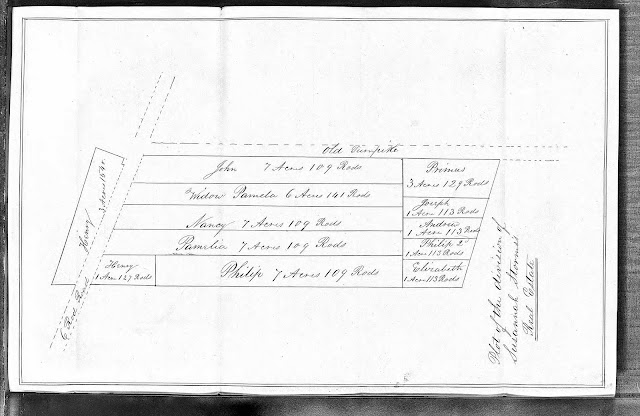 Old Turnpike
John 7 Acres 109 Rods
Widow Pamela 6 Acres 141 Rods
Nancy 7 Acres 109 Rods
Pamilia 7 Acres 109 Rods
Philip 7 Acres 109 Rods
Henry
1 Acre 127 Rods
Henry 3 Acres
Primus
3 Acres 129 Rods
Joseph
1 Acre 113 Rods
Andrew
1 Acre 113 Rods
Philip 2d
1 Acre 113 Rods
Elizabeth
1 Acre 113 Rods
Rode
Plot of the division of
Susannah Storms'
Real Estate